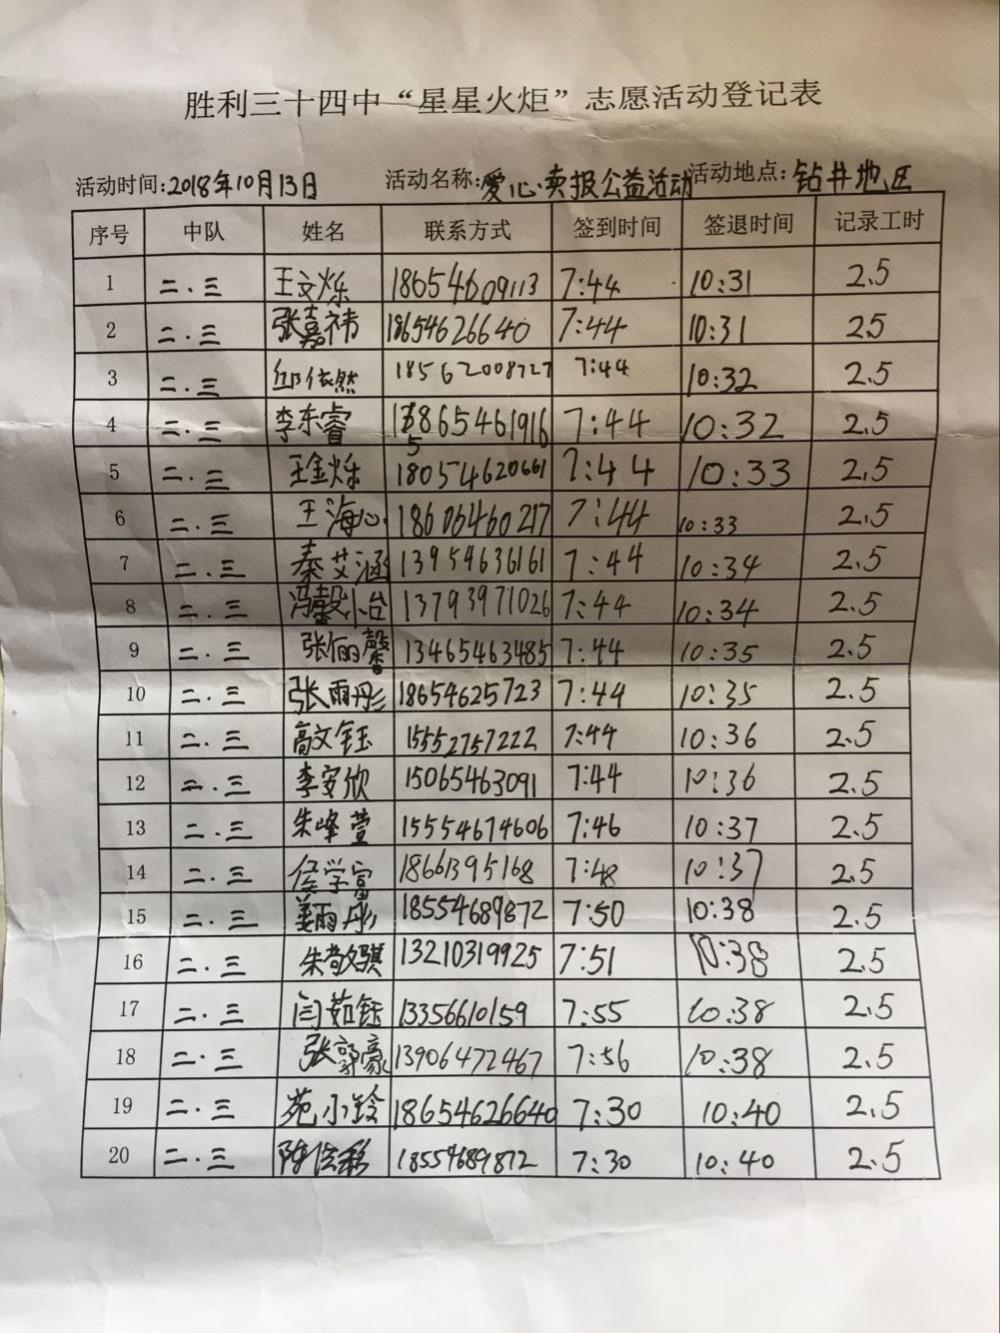 胜利三十四中“星星火炬”志愿活动登记表
活动时间:2018年10月13日 活动名称:爱心卖报公益活动 活动地点:钻井地区
序号 中队 姓名 联系方式 签到时间 签退时间 记录工时
1 二.三 王文烁 18654609113 7:44 10:31 2.5
2 二.三 张嘉祎 18654626640 7:44 10:31 25
3 二.三 邱依然 18562008727 7:44 10:32 2.5
4 二.三 李东睿 15865461916 7:44 10:32 2.5
5 二.三 王金烁 18054620661 7:44 10:33 2.5
6 二.三 王海心 18606460217 7:44 10:33 2.5
7 二.三 秦艾涵 13954636161 7:44 10:34 2.5
8 二.三 冯馨 13793971026 7:44 10:34 2.5
9 二.三 张俪馨 13465463485 7:44 10:35 2.5
10 二.三 张雨彤 18654625723 7:44 10:35 2.5
11 二.三 高文钰 15552757222 7:44 10:36 2.5
12 二.三 李安欣 15065463091 7:44 10:36 2.5
13 二.三 朱峰萱 15554674606 7:46 10:37 2.5
14 二.三 侯学富 18661395168 7:48 10:37 2.5
15 二.三 姜雨彤 18554689872 7:50 10:38 2.5
16 二.三 朱敬骐 13210319925 7:51 10:38 2.5
17 二.三 闫茹钰 13356610159 7:55 10:38 2.5
18 二.三 张郭豪 13906472467 7:56 10:38 2.5
19 二.三 苑小铃 18654626640 7:30 10:40 2.5
20 二.三 18554689872 7:30 10:40 2.5